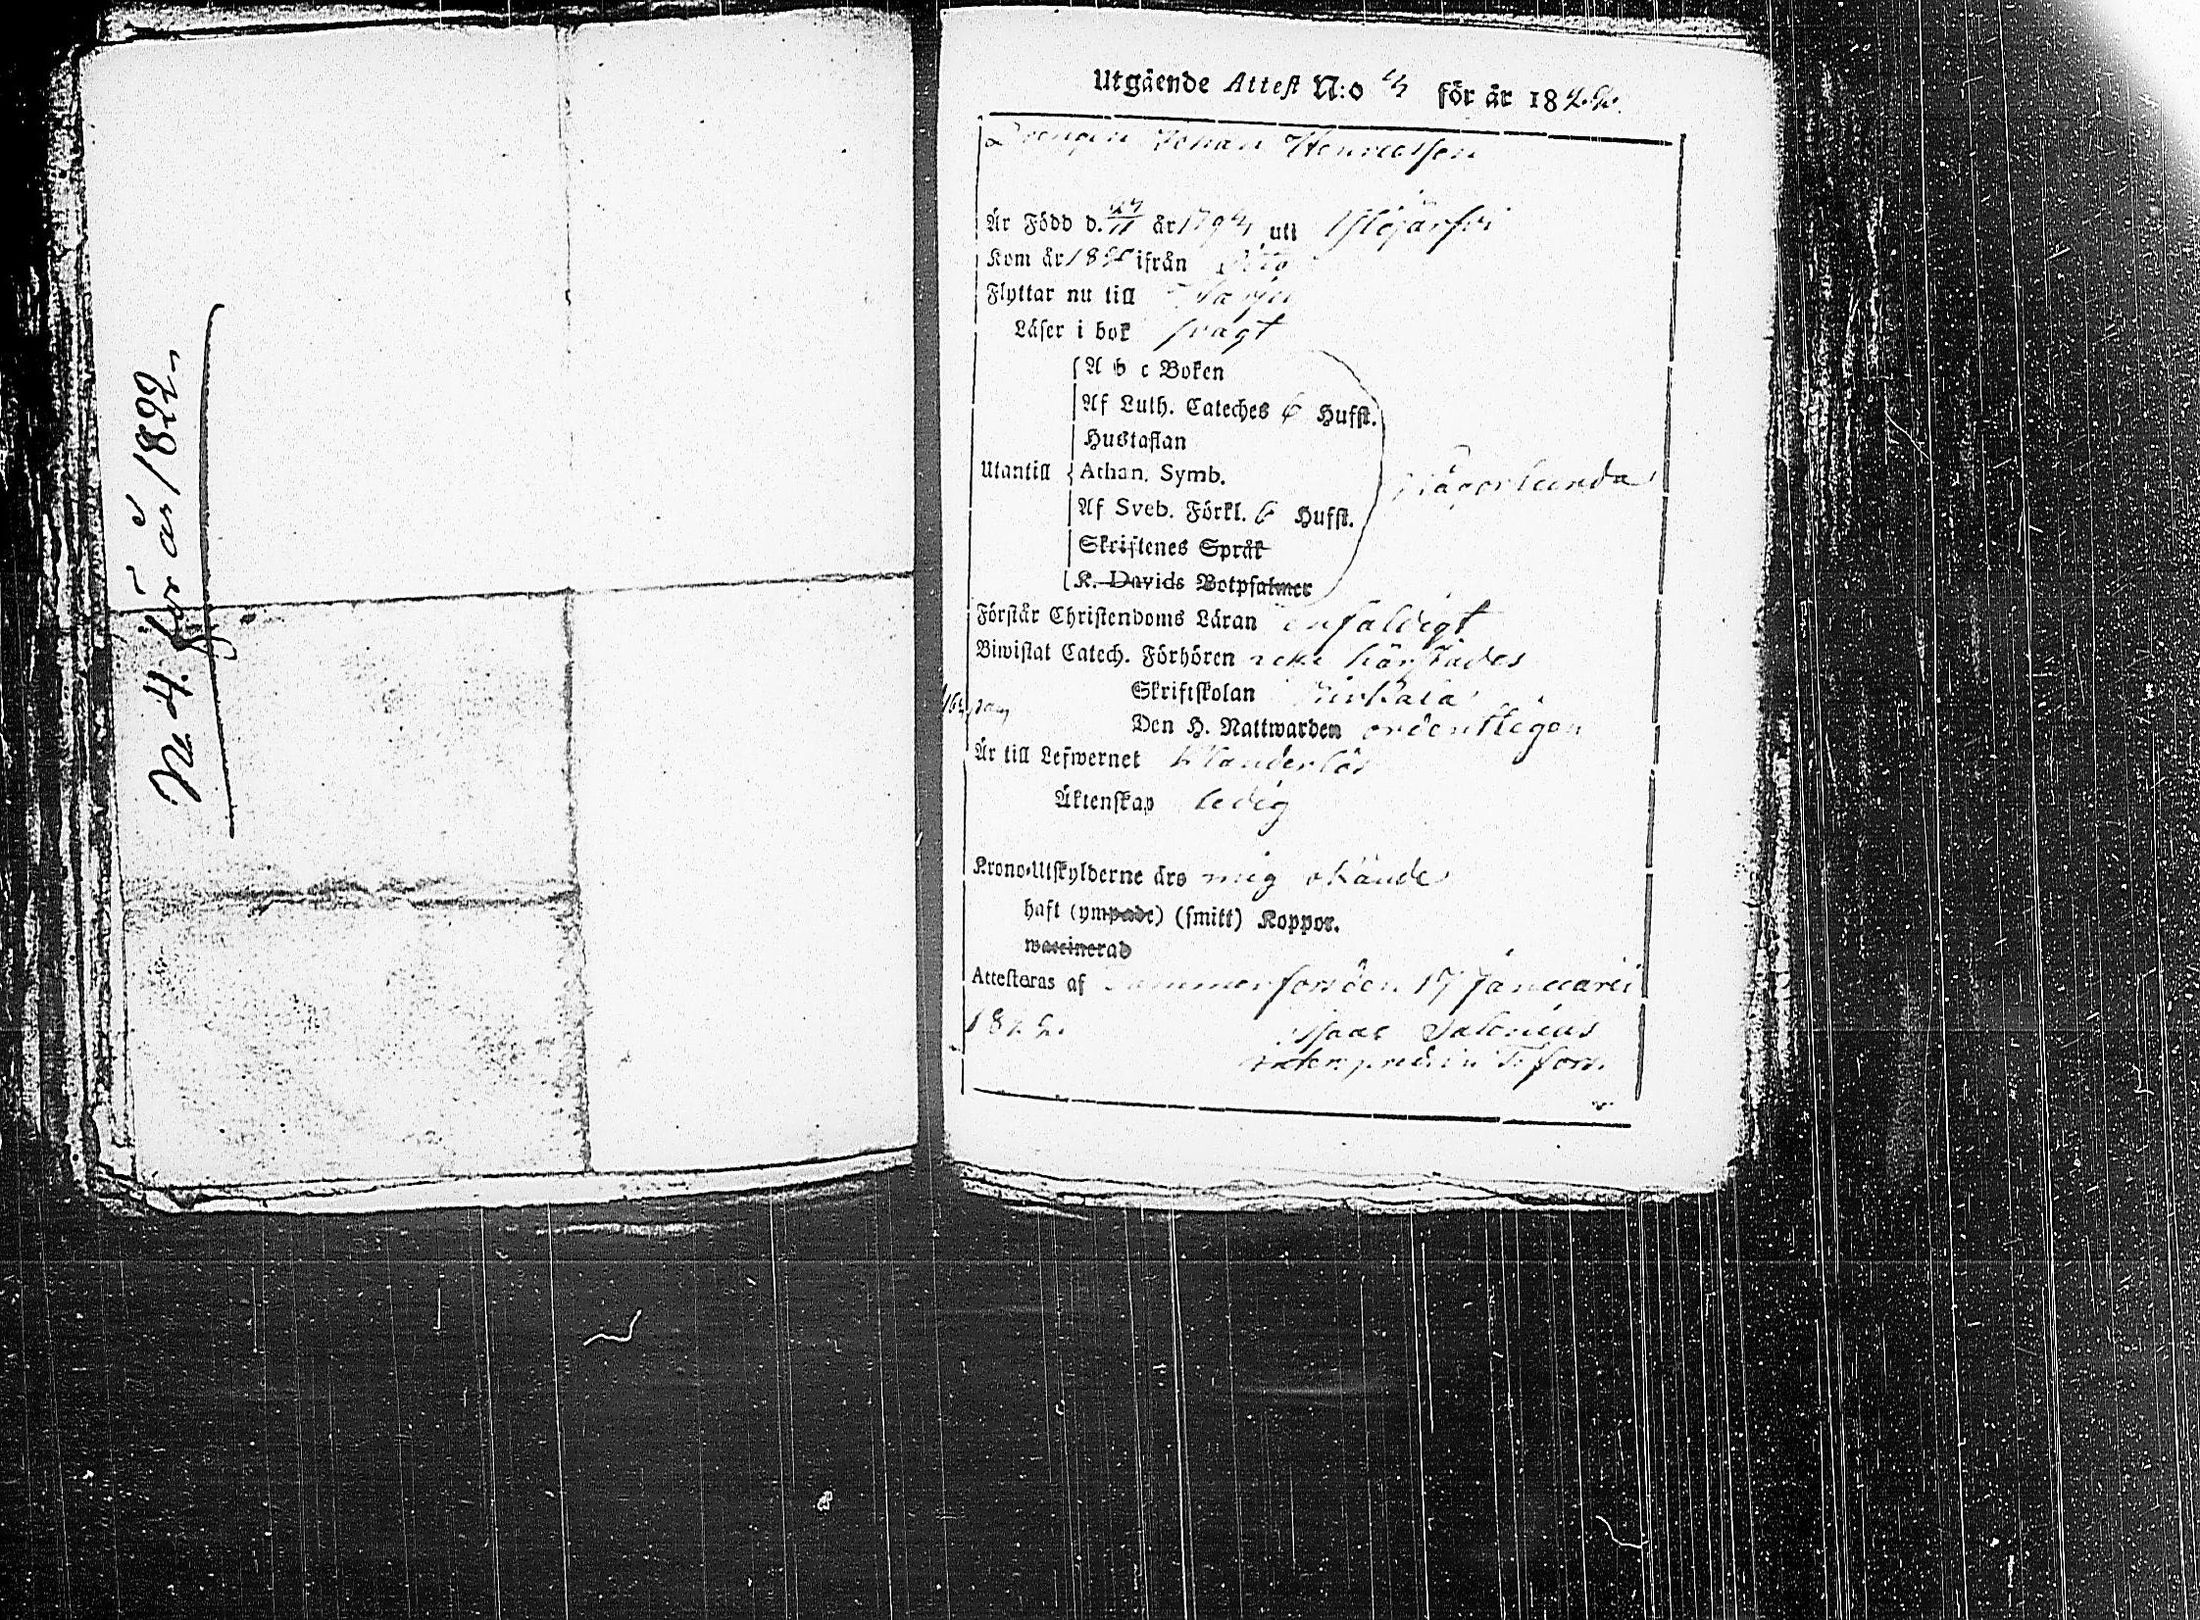 No 4. för år 1822
Utgående Attest N:o för år 1822.
Drengen Johan Henricsson
Är Född d. 27/11 år 179 uti Ylöjärfvi
Kom år 18 ifrån
Flyttar nu till
Läser i bok svagt
A b c Boken
Af Luth. Cateches 6 Hufst.
Hustaflan
Utantill Athan. Symb. någorlunda
Af Sveb. Förkl. 6 Hufst.
Skriftenes Språk
K. Davids Botpsalmer
Förstår Christendoms Läran enfaldigt
Biwistat Catech. Förhören icke härstädes
Skriftskolan Birkala
Den H. Nattwarden ordentligen
Är till Lefwernet klanderlös
Äktenskap ledig
Krono-Utskylderne äro mig okände
haft (ympade) (smitt) Koppor.
waccinerad
Attesteras af Tammerfors den 17 Januarii
1822. Isaac Salonius
v. pred. i T:fors.